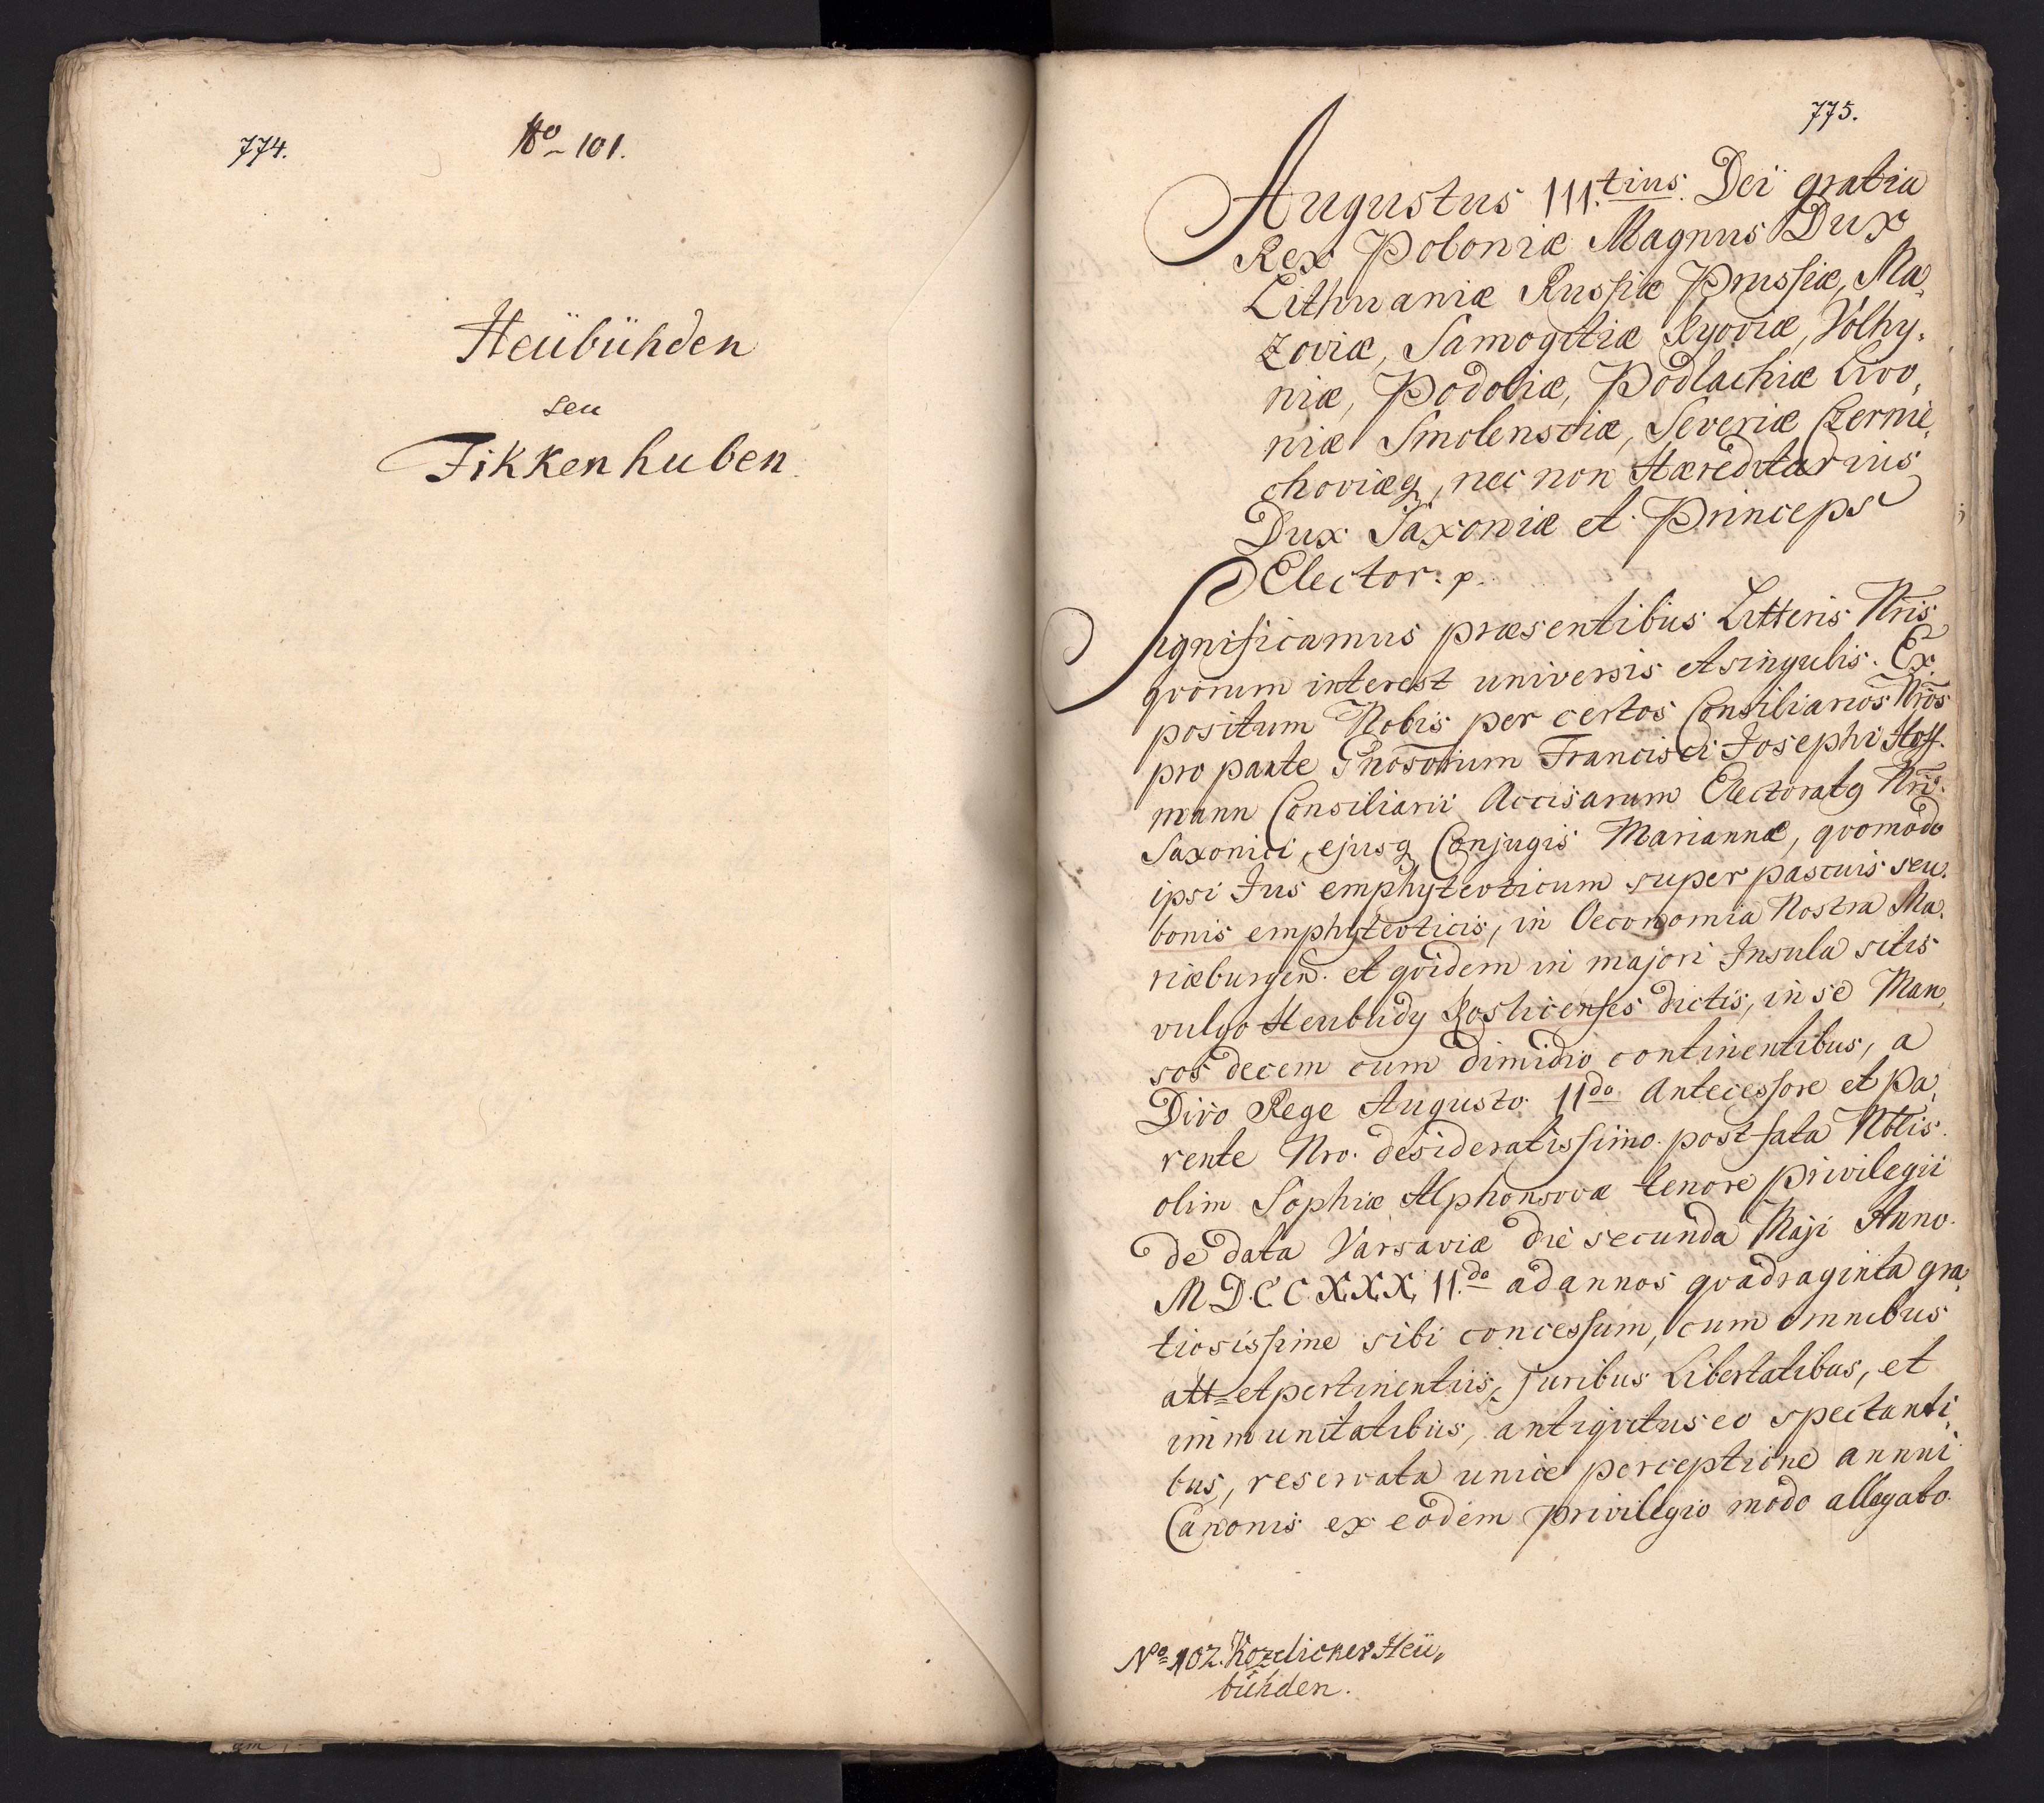 774.
No 101.
Heübühden
seu
Fikkenhuben
775.
Augustus III.tius Dei gratia
Rex Poloniæ Magnus Dux
Lithuaniæ Russiæ Prussiæ, Ma,
zoviæ, Samogitiæ Kyoviæ, Volhy,
niæ, Podoliæ, Podlachiæ Livo,
niæ Smolensciæ, Severiæ Czernie,
choviæq, nec non Hæreditarius
Dux Saxoniæ et Princeps
Elector. p.
Significamus præsentibus Litteris Nris
qvorum interest universis et singulis. Ex,
positum Nobis per certos Consiliarios Nros
pro parte Gnosorum Francisci Josephi Hoff,
mann Consiliarii Accisarum Electoratq Nri.
Saxonici, ejusq Conjugis Mariannæ, qvomodo
ipsi Jus emphytevticum super pascuis seu
bonis emphytevticis, in Oeconomia Nostra Ma,
riæburgen. et qvidem in majori Insula sitis
vulgo Heubudy Koslicenses dictis, in se Man,
sos decem cum dimidio continentibus, a
Divo Rege Augusto IIdo Antecessore et Pa,
rente Nro. desideratissimo post fata Nblis
olim Sophiæ Alphonsovæ tenore privilegii
de data Varsaviæ die secunda Maji Anno
M.D.C.C.X.X.X. II.do ad annos qvadraginta gra,
tiosissime sibi concessum, cum omnibus
att= et pertinentiis, juribus Libertatibus, et
immunitatibus, antiqvitus eo spectanti,
bus, reservata unice perceptione annui
Canonis ex eodem privilegio modo allegato
No 102. Kozelicker Heü,
bühden.